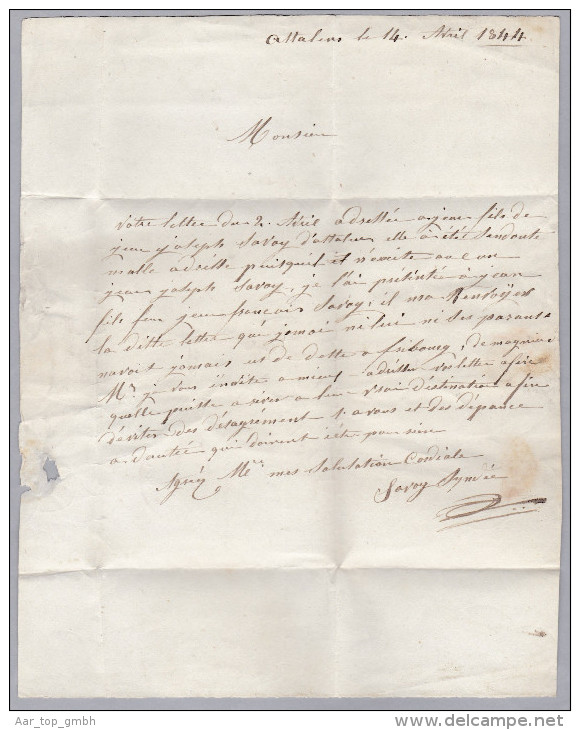 Attalens le 14. Avril 1844
Monsieur
Votre lettre du 2. Avril adressée a jean fils de
jean joseph Savoy d'attalens elle à été sendoute
malle adresse puisquil il n'existe aucun
jean joseph Savoy, je l'ai présenté à jean
fils feu jean françois Savoy, il ma Renvoÿez
la ditte lettre que jamai ni lui ni ses parans
navoit jamais us de dette a fribourg, de magniere
Mr. je vous invite a mieux adresser vos lettre afin
quelle puisse arver a leur vrai destination afin
déviter des désagrément a vous et des dépance
a dautre qui doivent éte pour rien
Agréz Mr. mes Salutation Cordiale
Savoy Syndic
Aar_top_gmbh
www.delcampe.net